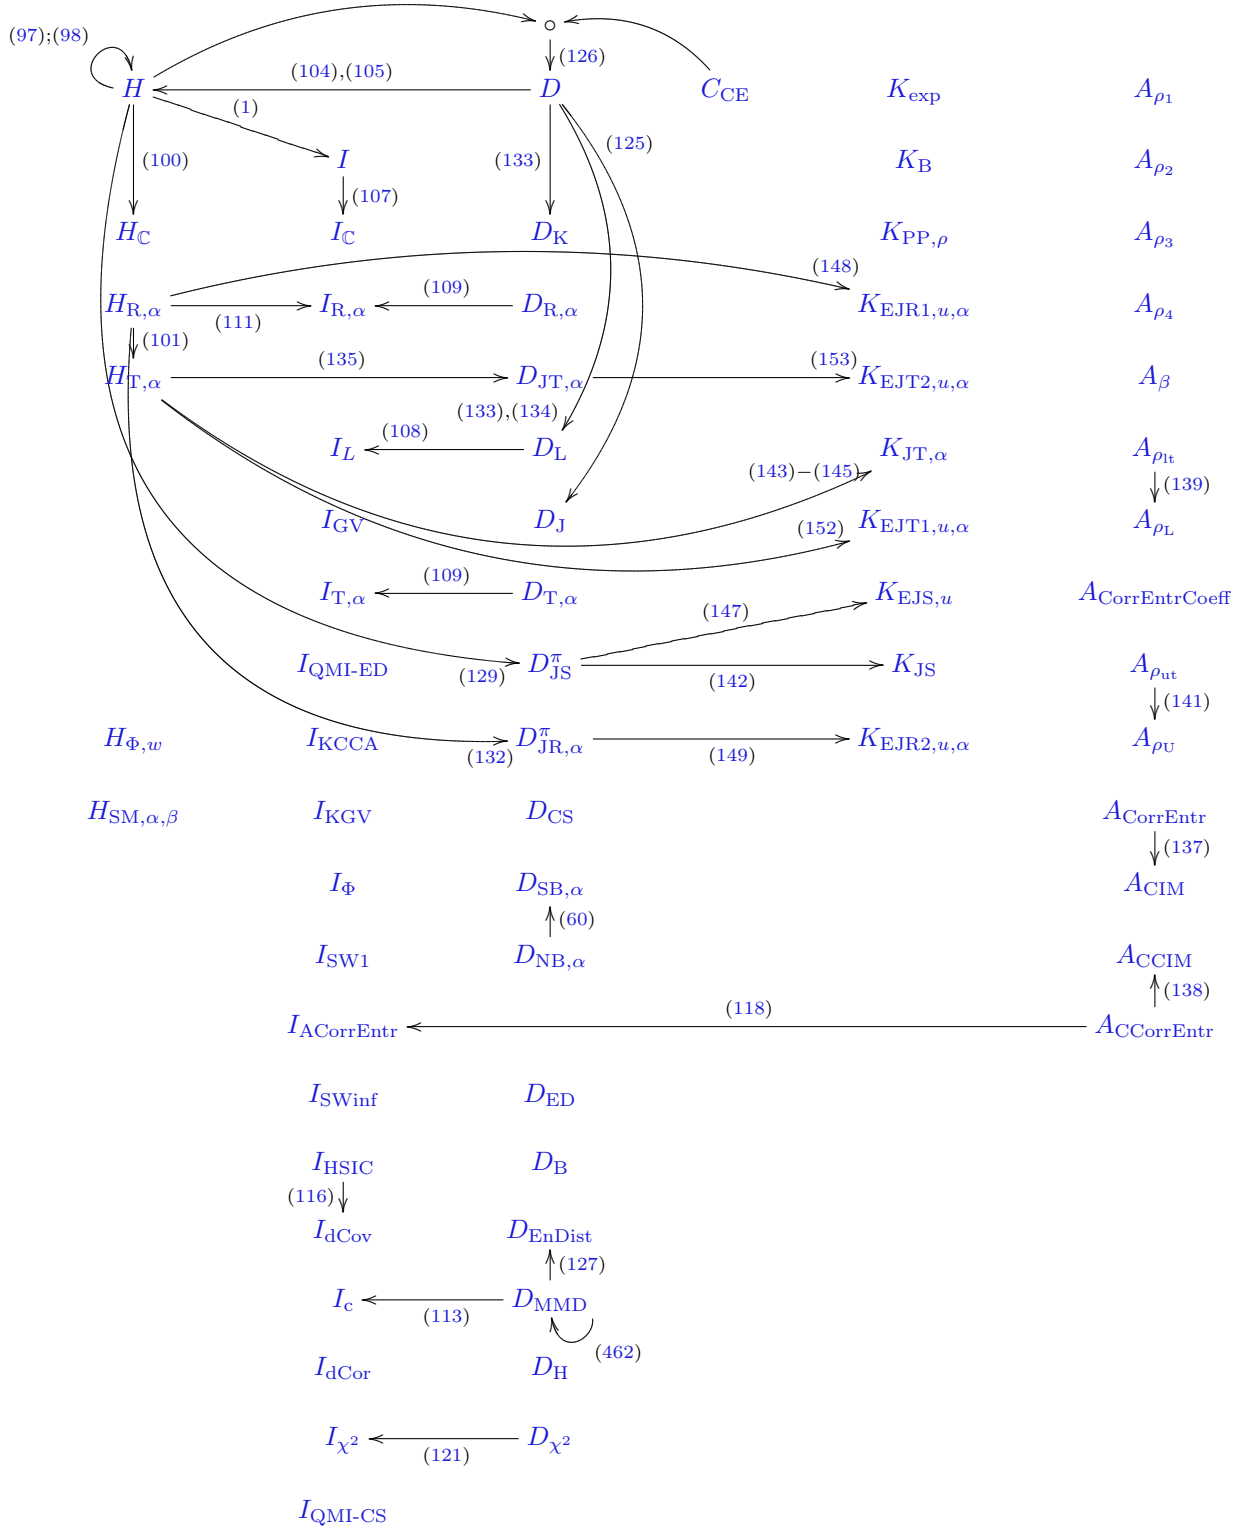 ∘
(97);(98)
(126)
(104),(105)
H D C_CE K_exp A_ρ₁
(1)
(125)
(100) I (133) K_B A_ρ₂
(107)
H_ℂ I_ℂ D_K K_PP,ρ A_ρ₃
(148)
(109)
H_R,α I_R,α D_R,α K_EJR1,u,α A_ρ₄
(111)
(101)
(135) (153)
H_T,α D_JT,α K_EJT2,u,α A_β
(133),(134)
(108)
I_L D_L K_JT,α A_ρ_lt
(143)–(145)
(139)
I_GV D_J (152) K_EJT1,u,α A_ρ_L
(109)
I_T,α D_T,α K_EJS,u A_CorrEntrCoeff
(147)
I_QMI-ED (129) D^π_JS K_JS A_ρ_ut
(142)
(141)
H_Φ,w I_KCCA D^π_JR,α K_EJR2,u,α A_ρ_U
(132) (149)
H_SM,α,β I_KGV D_CS A_CorrEntr
(137)
I_Φ D_SB,α A_CIM
(60)
I_SW1 D_NB,α A_CCIM
(138)
(118)
I_ACorrEntr A_CCorrEntr
I_SWinf D_ED
I_HSIC D_B
(116)
I_dCov D_EnDist
(127)
I_c D_MMD
(113)
(462)
I_dCor D_H
I_χ² D_χ²
(121)
I_QMI-CS